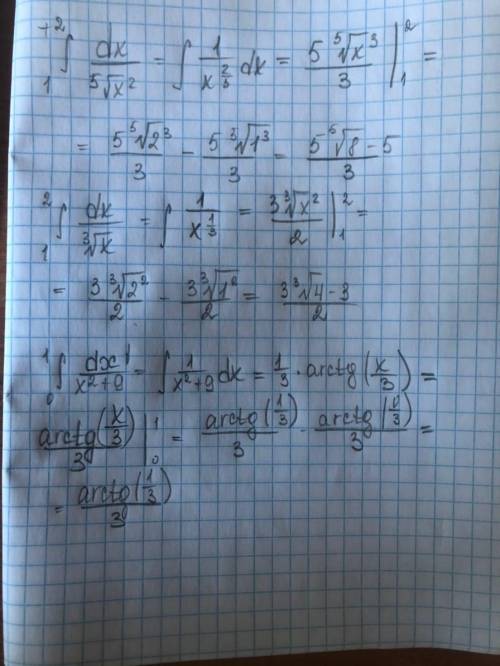 ∫₁⁺² dx/⁵√x² = ∫ 1/x^(2/3) dx = 5⁵√x³/3 |₁² =
= 5⁵√2³/3 − 5³√1³/3 = 5⁵√8 − 5/3
∫₁² dx/³√x = ∫ 1/x^(1/3) = 3³√x²/2 |₁² =
= 3³√2²/2 − 3³√1²/2 = 3³√4 − 3/2
∫₀¹ dx/x²+9 = ∫ 1/x²+9 dx = 1/3 · arctg(x/3) =
arctg(x/3)/3 |₀¹ = arctg(1/3)/3 - arctg(0/3)/3 =
= arctg(1/3)/3